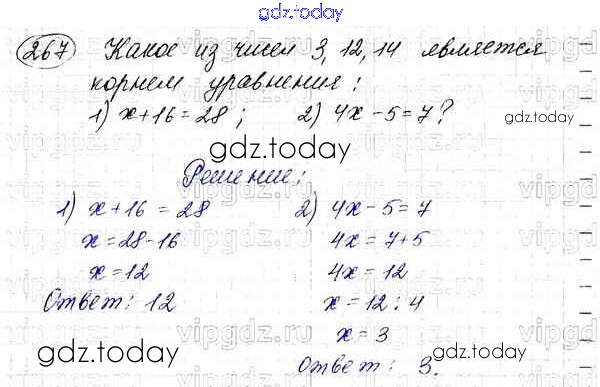 gdz.today
267 Какое из чисел 3, 12, 14 является
корнем уравнения:
1) x+16=28; 2) 4x-5=7?
gdz.today
gdz.today
Решение:
vipgdz.ru
1) x+16=28
x=28-16
x=12
Ответ: 12
2) 4x-5=7
4x=7+5
4x=12
x=12:4
x=3
Ответ: 3.
gdz.today
gdz.today